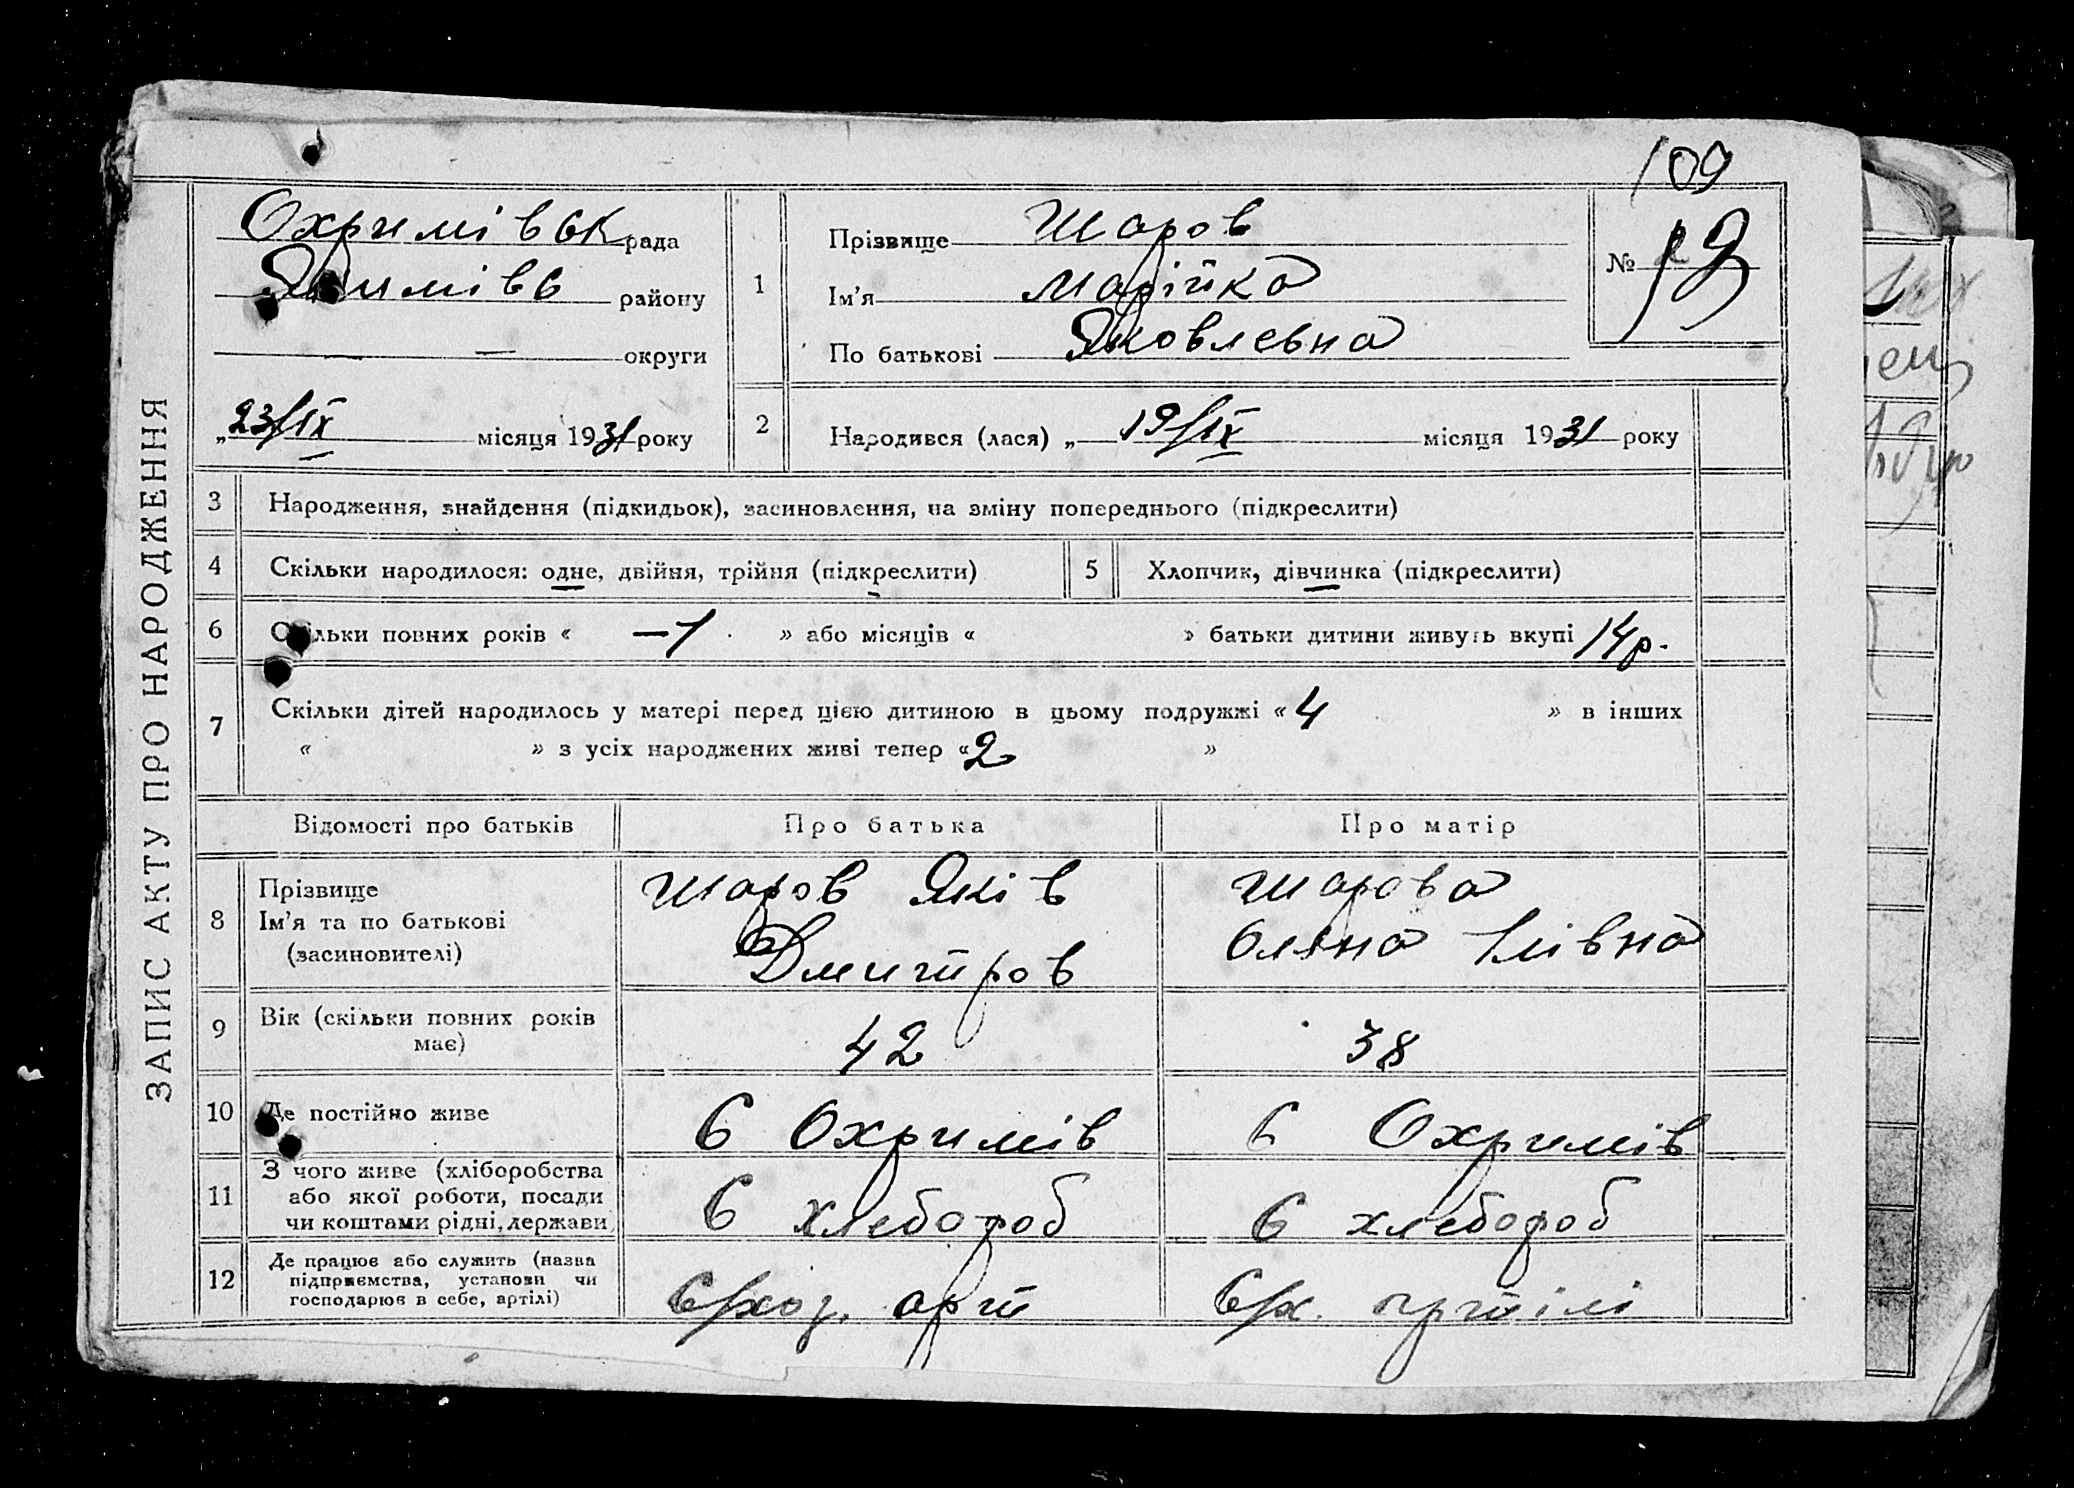 109
ЗАПИС АКТУ ПРО НАРОДЖЕННЯ
Охримівськ рада
Якимівс району
— округи
„23/IX місяця 1931 року
1
Прізвище Шаров
Ім'я Марійка
По батькові Яковлевна
№ 19
2
Народився (лася) „ 19/IX місяця 1931 року
3 Народження, знайдення (підкидьок), засиновлення, на зміну попереднього (підкреслити)
4 Скільки народилося: одне, двійня, трійня (підкреслити)
5 Хлопчик, дівчинка (підкреслити)
6 Скільки повних років « —1 » або місяців « » батьки дитини живуть вкупі 14 р.
7 Скільки дітей народилось у матері перед цією дитиною в цьому подружжі « 4 » в інших
« » з усіх народжених живі тепер « 2 »
Відомості про батьків Про батька Про матір
8 Прізвище
Ім'я та по батькові
(засиновителі)
Шаров Яків
Дмитров
Шарова
Оляна Ілівна
9 Вік (скільки повних років
має)
42
38
10 Де постійно живе
с Охримів
с Охримів
11 З чого живе (хліборобства
або якої роботи, посади
чи коштами рідні, держави
с хлебороб
с хлебороб
12 Де працює або служить (назва
підприємства, установи чи
господарює в себе, артілі)
с/хоз. арт
с/х. артілі